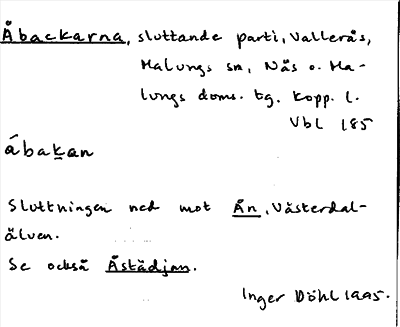 Åbackarna, sluttande parti, Vallerås,
Malungs sn, Nås o. Ma-
lungs doms. tg. Kopp. l.
Vbl 185
ábakan
Sluttningen ned mot Ån, Västerdal-
älven.
Se också Åstädjan.
Inger Döhl 1995.